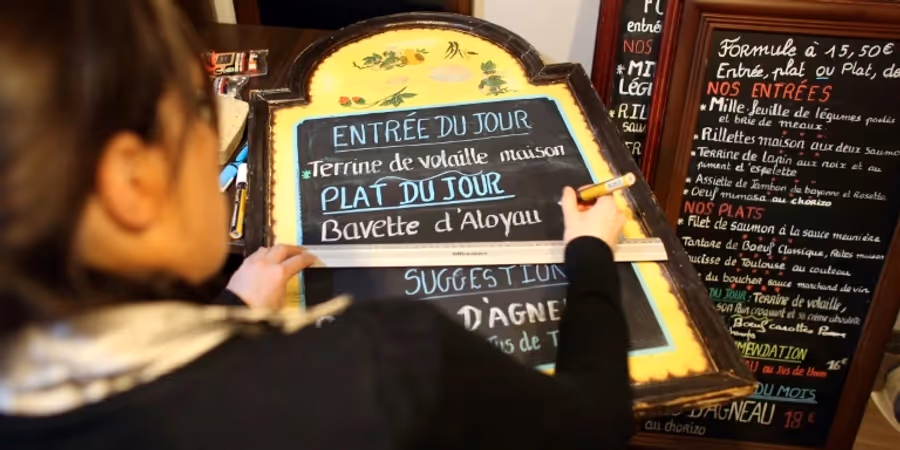 ENTRÉE DU JOUR
*Terrine de volaille maison
PLAT DU JOUR
Bavette d'Aloyau
SUGGESTION
D'AGNE
Jus de T
entré
NOS
* MI
LÉG
* RILL
sau
Formule à 15,50€
Entrée, plat ou Plat, de
NOS ENTRÉES
* Mille-feuille de légumes
et brie de meaux
* Rillettes maison aux deux saumo
* Terrine de lapin aux noix et au
piment d'espelette
* Assiette de Jambon de bayonne et Rosette
* Oeuf mimosa au chorizo
NOS PLATS
* Filet de saumon à la sauce meunière
Tartare de Boeuf Classique, frites
ucisse de Toulouse au couteau
du boucher sauce marchand de vin
DU JOUR: Terrine de volaille,
Boeuf carottes
MENDATION
AU au Jus de thym 16€
DU MOIS
D'AGNEAU 18€
au chorizo